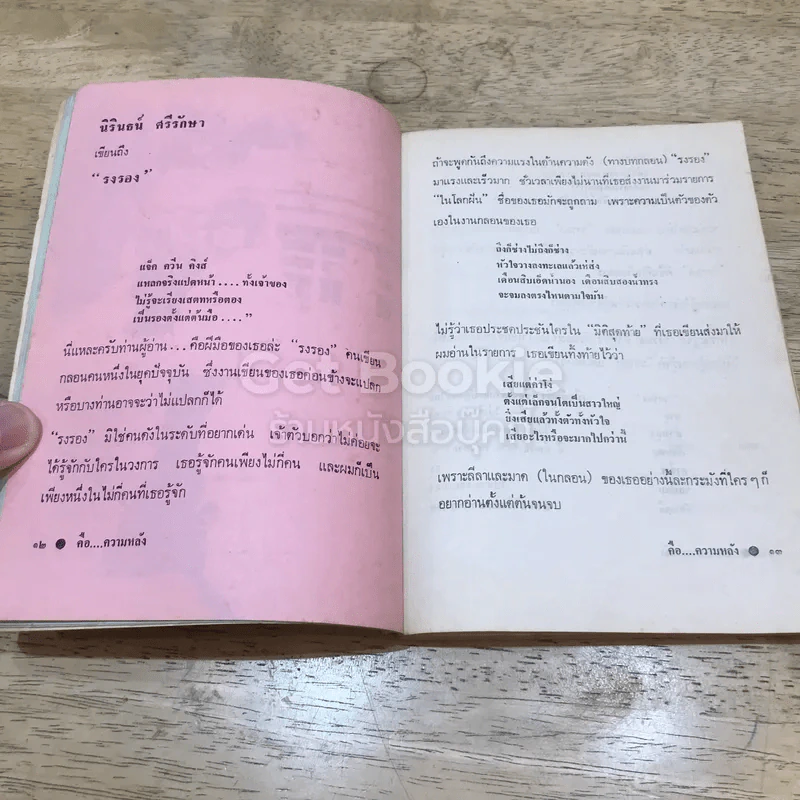 นิรินธน์ ศรีรักษา
เขียนถึง
“รงรอง”
แจ็ค ควีน คิงส์
แหลกจริงแปดหน้า .... ทั้งเจ้าของ
ไม่รู้จะเรียงเสตทหรือตอง
เป็นรองตั้งแต่ต้นมือ ....”
นี่แหละครับท่านผู้อ่าน ... คือฝีมือของเธอล่ะ “รงรอง” คนเขียน
กลอนคนหนึ่งในยุคปัจจุบัน ซึ่งงานเขียนของเธอค่อนข้างจะแปลก
หรือบางท่านอาจจะว่าไม่แปลกก็ได้
“รงรอง” มิใช่คนดังในระดับที่อยากเด่น เจ้าตัวบอกว่าไม่ค่อยจะ
ได้รู้จักกับใครในวงการ เธอรู้จักคนเพียงไม่กี่คน และผมก็เป็น
เพียงหนึ่งในไม่กี่คนที่เธอรู้จัก
๑๒ ● คือ....ความหลัง
ถ้าจะพูดกันถึงความแรงในด้านความดัง (ทางบทกลอน) “รงรอง”
มาแรงและเร็วมาก ชั่วเวลาเพียงไม่นานที่เธอส่งงานมาร่วมรายการ
“ในโลกฝัน” ชื่อของเธอมักจะถูกถาม เพราะความเป็นตัวของตัว
เองในงานกลอนของเธอ
ถึงก็ช่างไม่ถึงก็ช่าง
หัวใจวางลงทะเลแล้วเห่ส่ง
เดือนสิบเอ็ดน้ำนอง เดือนสิบสองน้ำทรง
จะจมลงตรงไหนตามใจมัน
ไม่รู้ว่าเธอประชดประชันใครใน “มิคิสุดท้าย” ที่เธอเขียนส่งมาให้
ผมอ่านในรายการ เธอเขียนทิ้งท้ายไว้ว่า
เสียแต่ค่าโง่
ตั้งแต่เล็กจนโตเป็นสาวใหญ่
ยิ่งเสียแล้วทั้งตัวทั้งหัวใจ
เสียอะไรหรือจะมากไปกว่านี้
เพราะลีลาและมาด (ในกลอน) ของเธออย่างนี้ละกระมังที่ใคร ๆ ก็
อยากอ่านตั้งแต่ต้นจนจบ
คือ....ความหลัง ● ๑๓
Get Bookie
ร้านหนังสือบุ๊คกี้